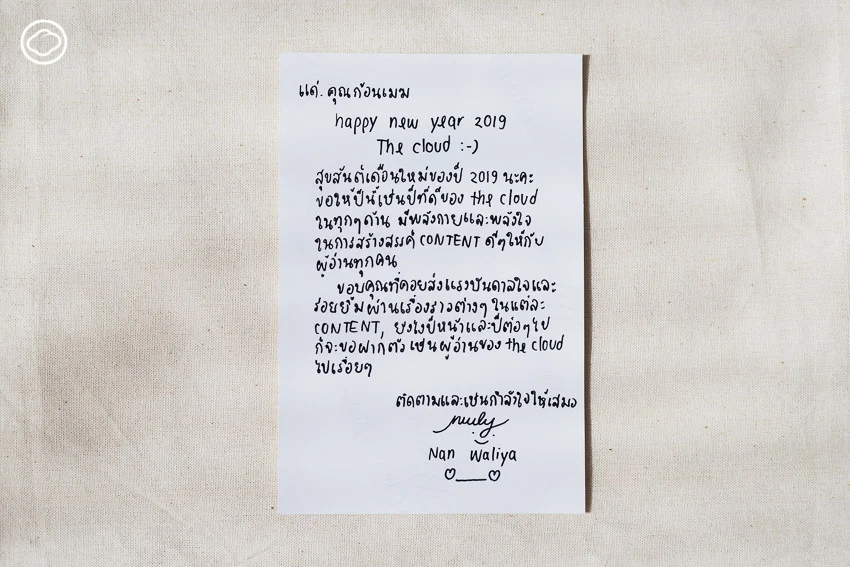 แด่. คุณก้อนเมฆ
happy new year 2019
The cloud :-)
สุขสันต์เดือนใหม่ของปี 2019 นะคะ
ขอให้ปีนี้เป็นปีที่ดีของ the cloud
ในทุกๆด้าน มีพลังกายและพลังใจ
ในการสร้างสรรค์ CONTENT ดีๆให้กับ
ผู้อ่านทุกคน
ขอบคุณที่คอยส่งแรงบันดาลใจและ
รอยยิ้มผ่านเรื่องราวต่างๆ ในแต่ละ
CONTENT, ยังไงปีหน้าและปีต่อๆไป
ก็จะขอฝากตัวเป็นผู้อ่านของ the cloud
ไปเรื่อยๆ
ติดตามและเป็นกำลังใจให้เสมอ
Nan Waliya